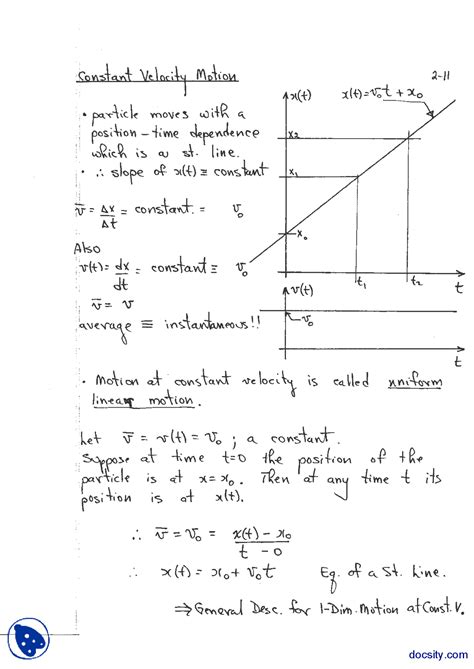 Constant Velocity Motion
2-11
• particle moves with a
position-time dependence
which is a st. line.
• ∴ slope of x(t) ≡ constant
v̄ = Δx/Δt = constant = v₀
Also
v(t) = dx/dt = constant ≡ v₀
v̄ = v
average ≡ instantaneous!!
x(t)
x(t)=v₀t + x₀
x₂
x₁
x₀
t₁
t₂
t
v(t)
v₀
t
• Motion at constant velocity is called uniform
linear motion.
Let v̄ = v(t) = v₀ ; a constant.
Suppose at time t=0 the position of the
particle is at x = x₀. Then at any time t its
position is at x(t).
∴ v̄ = v₀ = x(t) − x₀ / t − 0
∴ x(t) = x₀ + v₀t Eq. of a St. Line.
⇒ General Desc. for 1-Dim. Motion at Const. V.
docsity.com